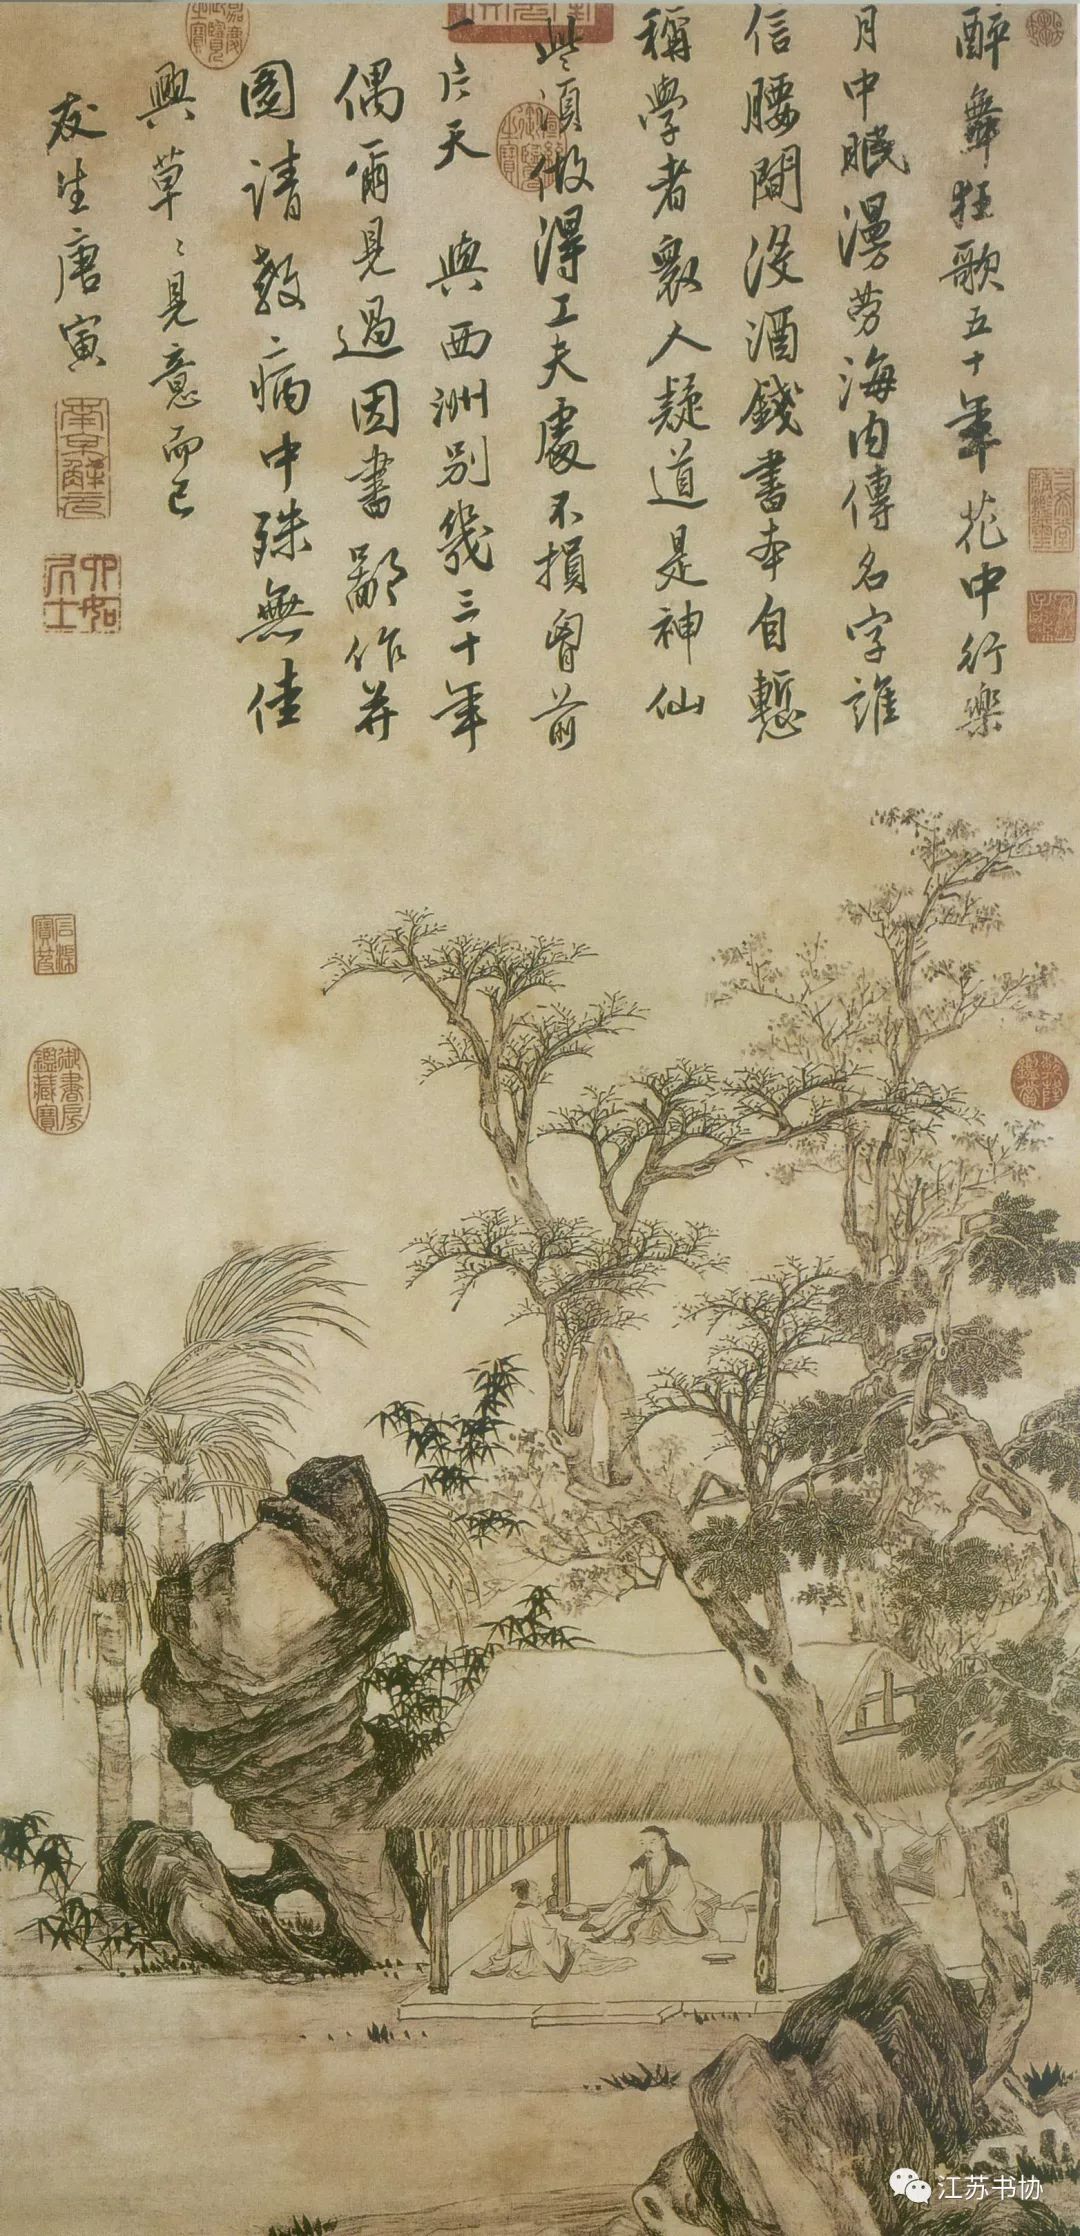 醉舞狂歌五十年花中行樂
月中眠漫勞海內傳名字誰
信腰間沒酒錢書本自慙
稱學者眾人疑道是神仙
些須做得工夫處不損胷前
一片天　與西洲別幾三十年
偶爾見過因書鄙作并
圖請教病中殊無佳
興草〻見意而已
友生唐寅
南京解元
六如居士
嘉慶御覽之寶
宣統御覽之寶
御書房鑑藏寶
江苏书协